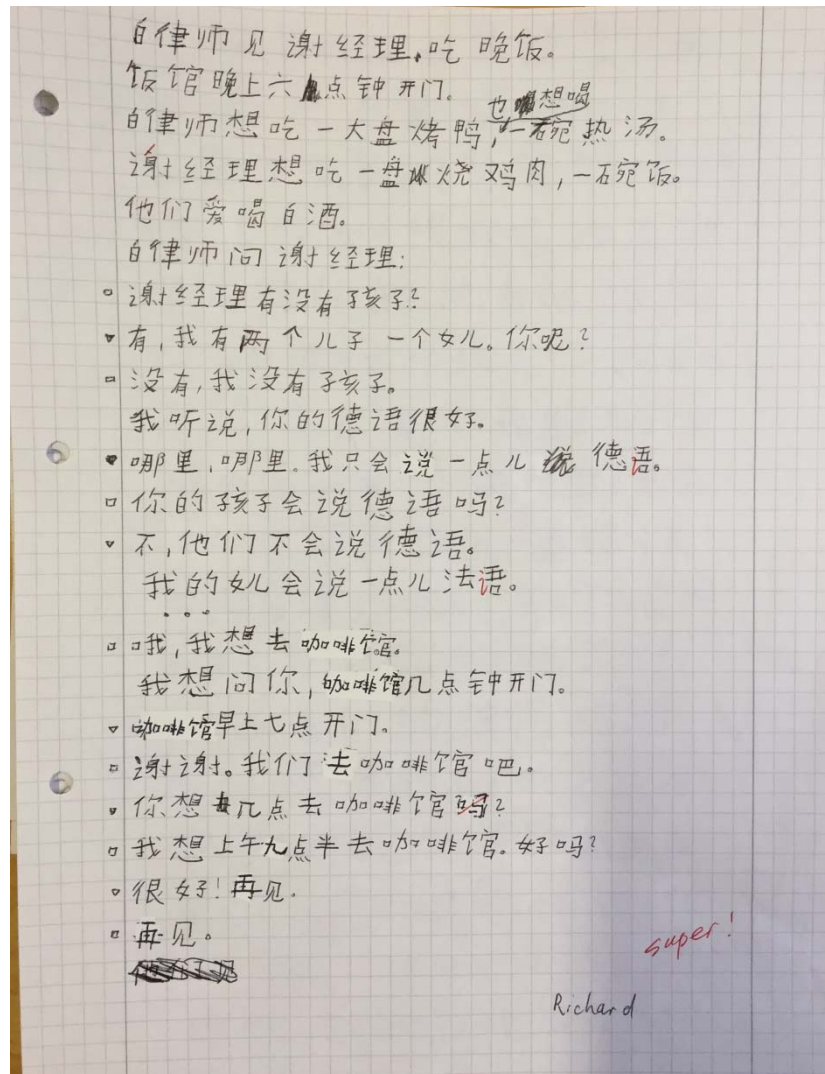 白律师见谢经理,吃晚饭。
饭馆晚上六点钟开门。
也想喝
白律师想吃一大盘烤鸭,一碗热汤。
谢经理想吃一盘烧鸡肉,一碗饭。
他们爱喝白酒。
白律师问谢经理:
谢经理有没有孩子?
有,我有两个儿子一个女儿。你呢?
没有,我没有孩子。
我听说,你的德语很好。
哪里,哪里。我只会说一点儿德语。
你的孩子会说德语吗?
不,他们不会说德语。
我的女儿会说一点儿法语。
...
哦,我想去咖啡馆。
我想问你,咖啡馆几点钟开门。
咖啡馆早上七点开门。
谢谢。我们去咖啡馆吧.
你想几点去咖啡馆?
我想上午九点半去咖啡馆.好吗?
很好!再见.
再见。
super!
Richard